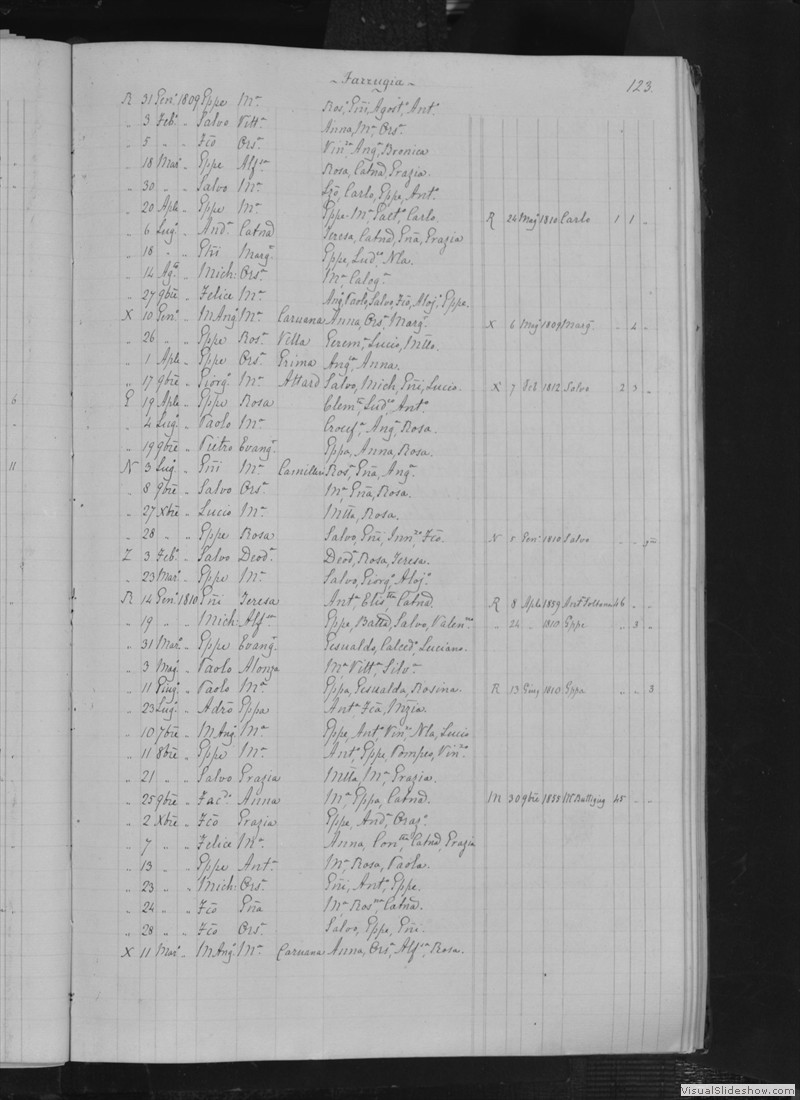 ~ Farrugia ~
123.
R 31 Gen.º 1809 Eppe M.ª Ros.ª, Gñi, Agost.º, Ant.º
„ 3 Feb.º „ Salvo Vitt.ª Anna, M.ª, Ors.ª
„ 5 „ „ Fcõ Ors.ª Vin.ᶻᵃ, Ang.ª, Bronica
„ 18 Mar.º „ Eppe Alf.ⁿᵃ Rosa, Catnã, Grazia
„ 30 „ „ Salvo M.ª Lzõ, Carlo, Eppe, Ant.º
„ 20 Aple „ Eppe M.ª Eppe M.ª Carlo R 24 Mag 1810 Carlo 1 1 „
„ 6 Lug.º „ And.ª Catnã Teresa, Catnã, Gña, Grazia
„ 18 „ „ Gñi Marg.ª Eppe, Lud.ᶜᵒ Nla.
„ 14 Ag.º „ Mich: Ors.ª M.ª Calog.ª
„ 27 9bre „ Felice M.ª Ang.º Paolo, Salvo, Fcõ, Aloj.º Eppe.
X 10 Gen.º „ M Ang.º M.ª Caruana Anna, Ors.ª, Marg.ª X 6 Mag 1809 Marg.ª „ 4 „
„ 26 „ „ Eppe Ros.ª Villa Gerem.ª, Lucio, Mtto.
„ 1 Aple „ Eppe Ors.ª Grima Ang.ᶜᵃ, Anna.
„ 17 9bre „ Giorg.º M.ª Attard Salvo, Mich, Gñi, Lucio. X 7 1812 Salvo 2 3 „
G 19 Aple „ Eppe Rosa Clem.ᵉ, Lud.ᶜᵒ, Ant.º
„ 4 Lug.º „ Paolo M.ª Crocef.ª, Ang.ª, Rosa.
„ 19 9bre „ Pietro Evang.ª Eppa, Anna, Rosa.
N 3 Lug. „ Gñi M.ª Camilleri Ros.ª, Gña, Ang.ª
„ 8 9bre „ Salvo Ors.ª M.ª, Gña, Rosa.
„ 27 Xbre „ Lucio M.ª Mtta, Rosa.
„ 28 „ „ Eppe Rosa Salvo, Gñi, Inn.ᶻᵒ, Fcõ. N 5 Gen.º 1810 Salvo
Z 3 Feb.º „ Salvo Deod.ª Deod.ª, Rosa, Teresa.
„ 23 Mar.º „ Eppe M.ª Salvo, Giorg.º, Aloj.º
R 14 Gen.º 1810 Gñi Teresa Ant.ª, Elis.ᵗᵗᵃ, Catnã R 8 Aple 1859 Ant.ª 46 „ „
„ 19 „ „ Mich: Alf.ⁿᵃ Eppe, Batta, Salvo, Valen.ⁿᵒ „ 24 „ 1810 Eppe „ 3 „
„ 31 Mar.º „ Eppe Evang.ª Gesualdo, Calced.º, Luciano.
„ 3 Mag. „ Paolo Alonza M.ª Vitt.ª, Silv.ª
„ 11 Giug.º „ Paolo M.ª Eppa, Gesualda, Rosina. R 13 Giug 1810 Eppa „ „ 3
„ 23 Lug.º „ Adrõ Eppa Ant.ª Fcã, Nzia.
„ 10 7bre „ M Ang.º M.ª Eppe, Ant.º Vin.ᶻᵒ Nla, Lucio
„ 11 8bre „ Eppe M.ª Ant.º, Eppe, Pompeo, Vin.ᶻᵒ
„ 21 „ „ Salvo Grazia Mtta, M.ª, Grazia.
„ 25 9bre „ Fac.ᵈᵒ Anna M.ª, Eppa, Catnã. M 30 9bre 1855 Mᵉ Buttigieg 45 „ „
„ 2 Xbre „ Fcõ Grazia Eppe, And.ª, Oraz.º
„ 7 „ „ Felice M.ª Anna, Con.ᵗᵗᵃ, Catnã, Grazia
„ 13 „ „ Eppe Ant.ª M.ª, Rosa, Paola.
„ 23 „ „ Mich: Ors.ª Gñi, Ant.º, Eppe.
„ 24 „ „ Fcõ Gña M.ª Ros.ʳⁱᵃ Catnã.
„ 28 „ „ Fcõ Ors.ª Salvo, Eppe, Gñi.
X 11 Mar.º „ M Ang.º M.ª Caruana Anna, Ors.ª, Alf.ⁿᵃ, Rosa.
6
11
VisualSlideshow.com